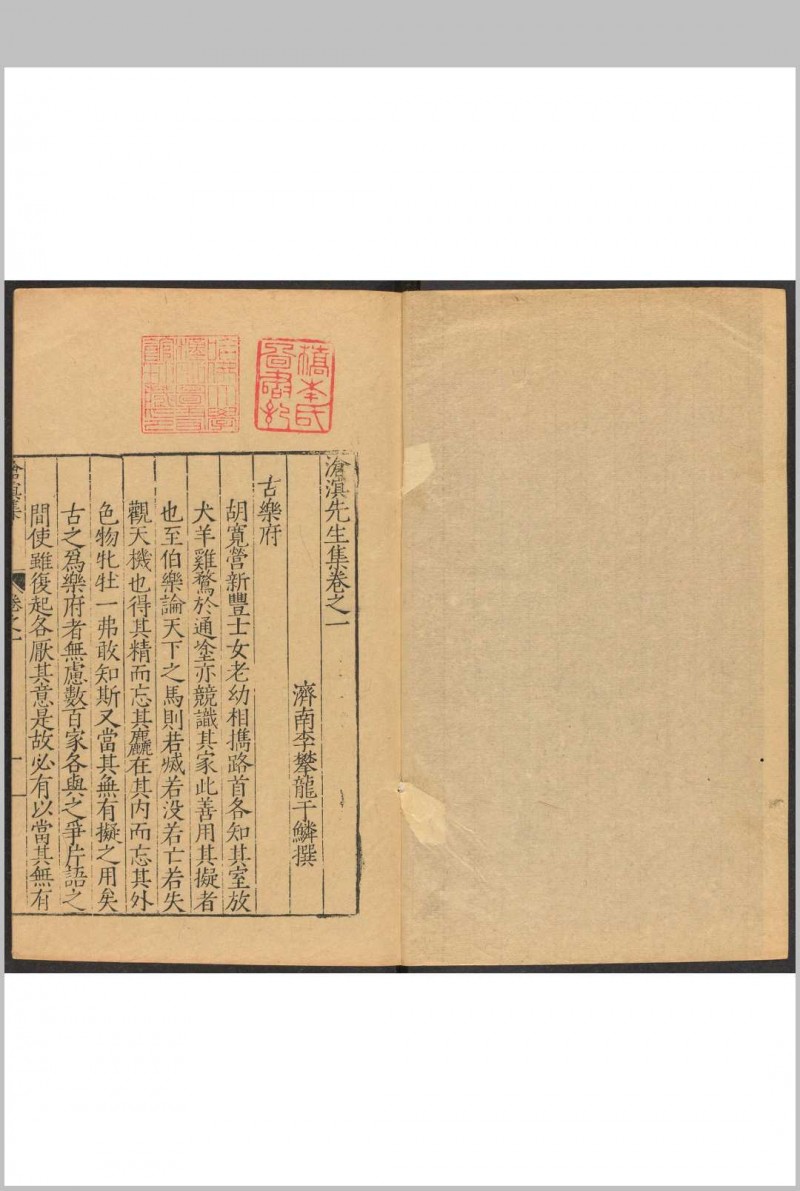 滄溟先生集卷之一
濟南李攀龍于鱗撰
古樂府
胡寬營新豐士女老幼相擕路首各知其室放
犬羊雞鶩於通塗亦競識其家此善用其擬者
也至伯樂論天下之馬則若滅若没若亡若失
觀天機也得其精而忘其麤在其内而忘其外
色物牝牡一弗敢知斯又當其無有擬之用矣
古之爲樂府者無慮數百家各與之爭片語之
間使雖復起各厭其意是故必有以當其無有
滄溟集
卷之一
一
橋本氏
哈佛大學